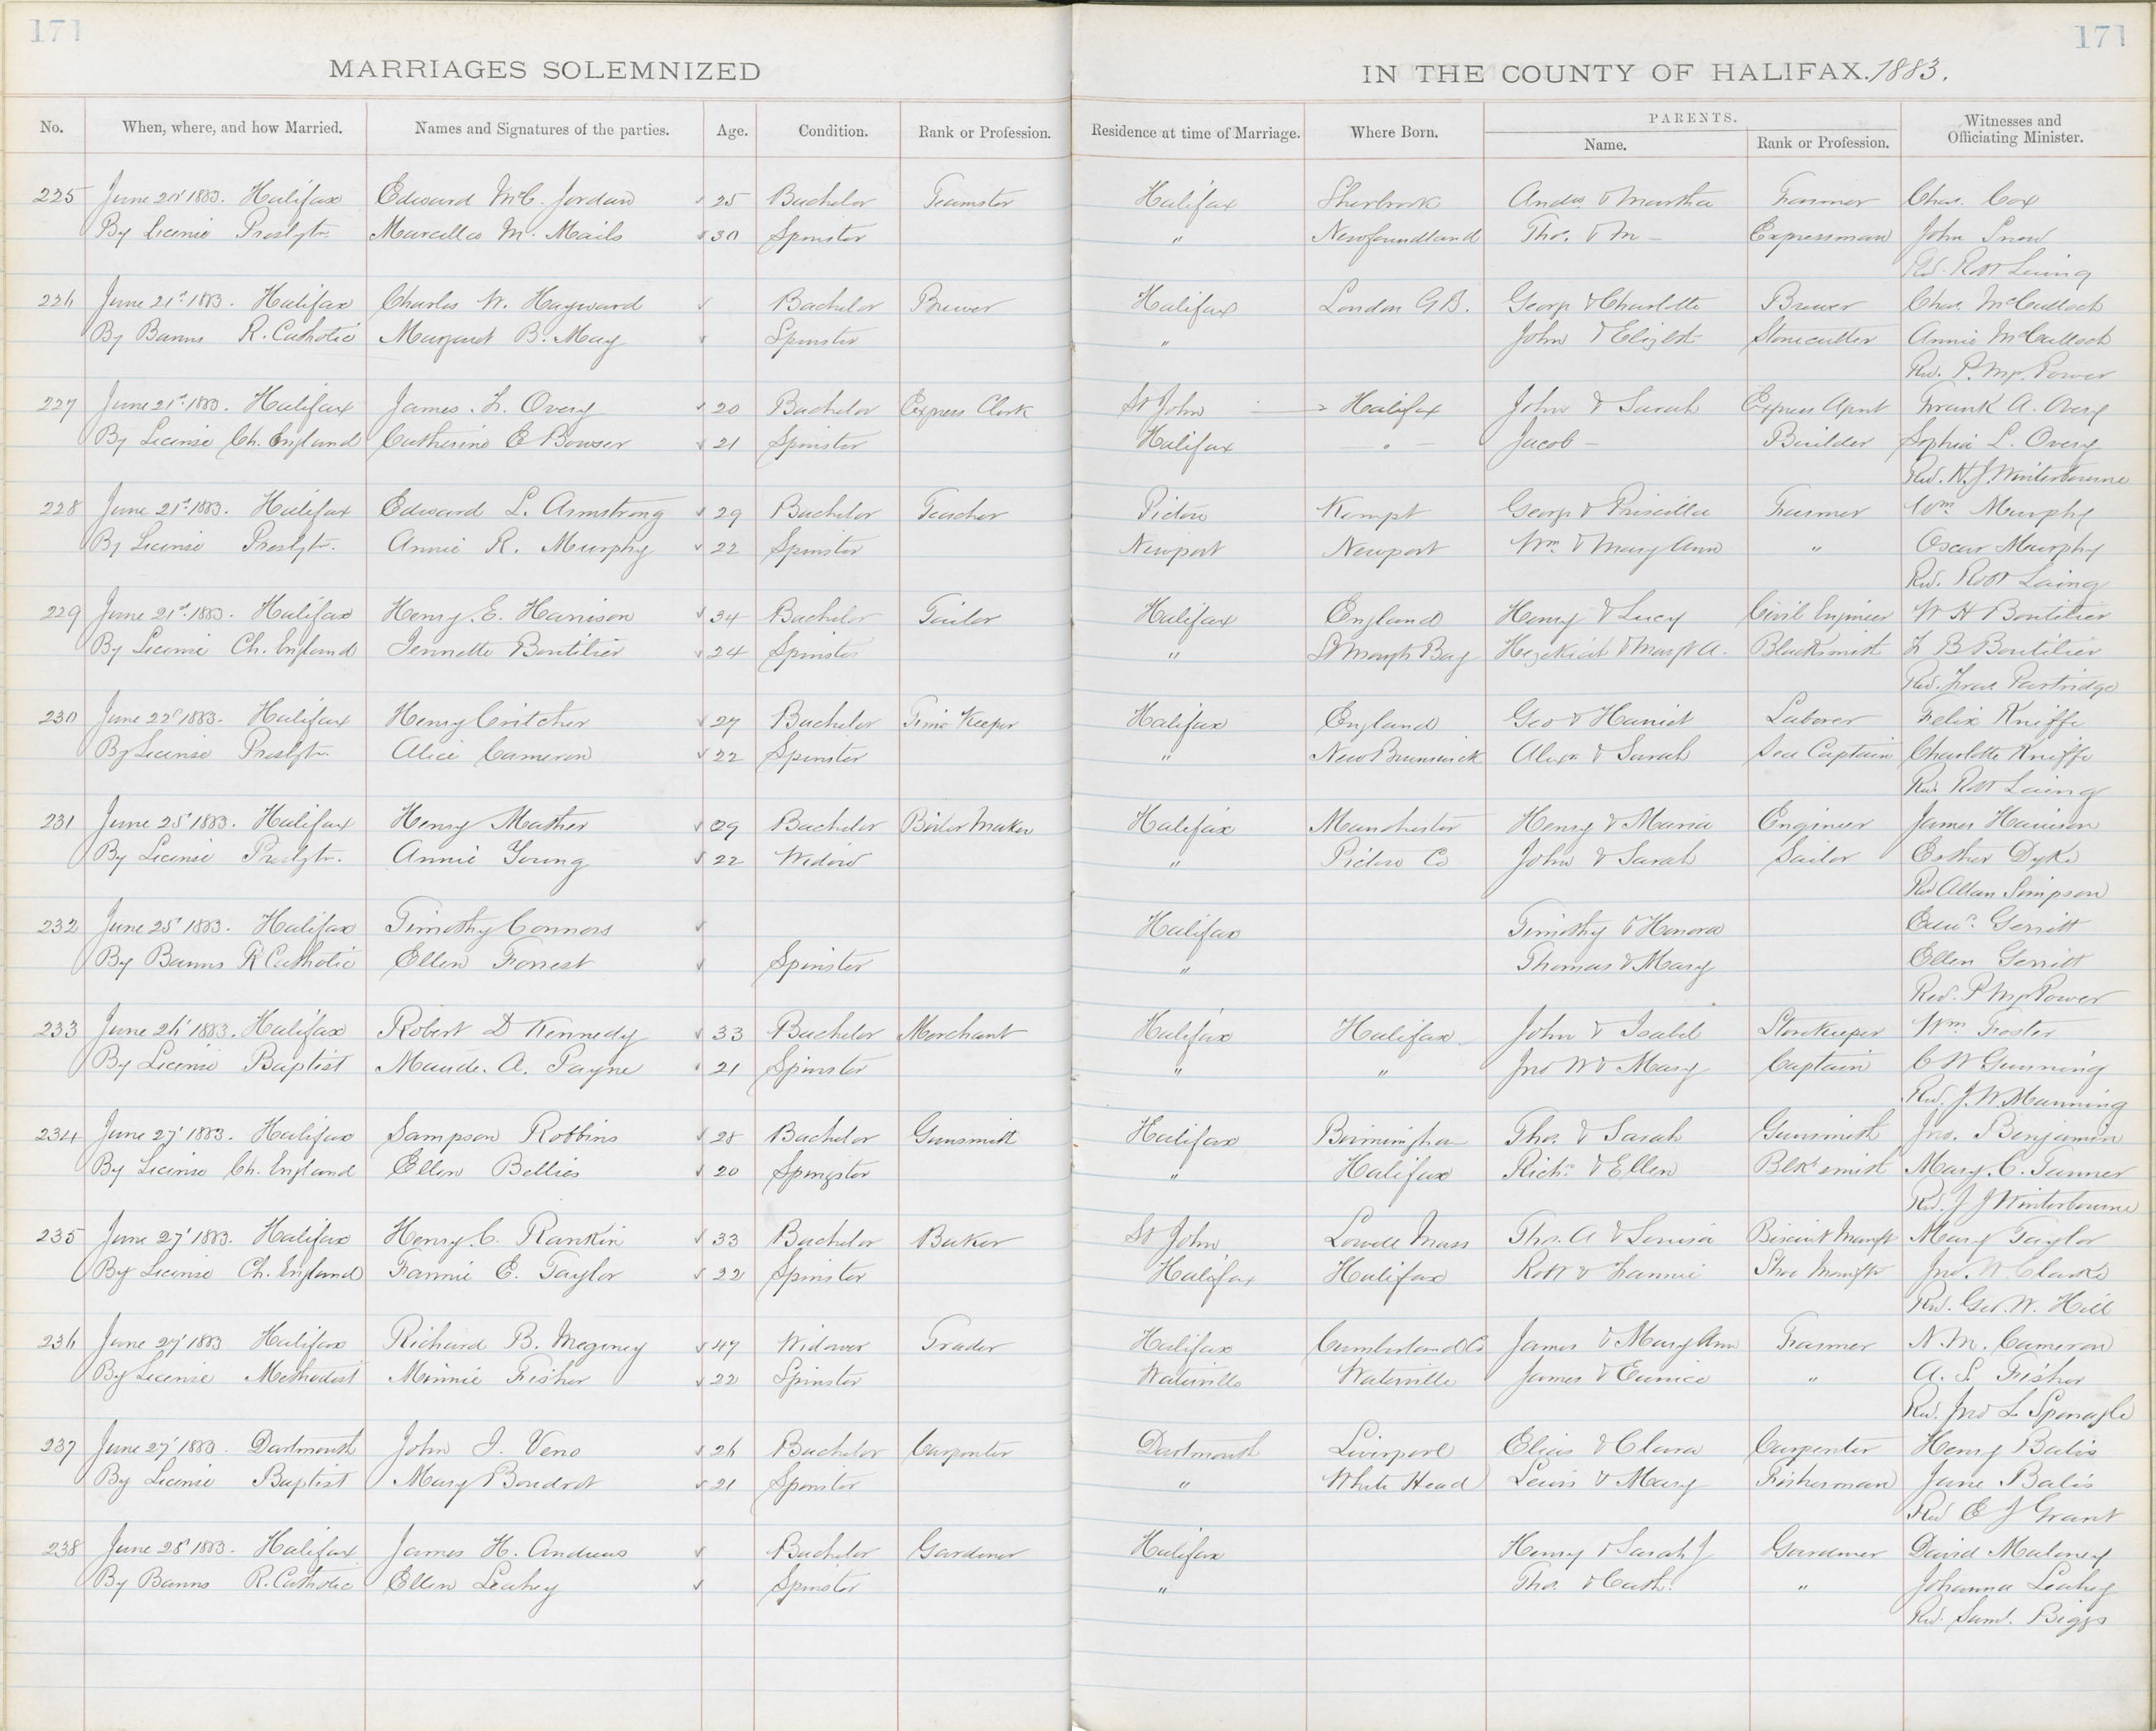 171
171
MARRIAGES SOLEMNIZED IN THE COUNTY OF HALIFAX. 1883.
No. When, where, and how Married. Names and Signatures of the parties. Age. Condition. Rank or Profession. Residence at time of Marriage. Where Born. PARENTS. Name. Rank or Profession. Witnesses and Officiating Minister.
225 June 20' 1883. Halifax Edward McC. Jordan 25 Bachelor Teamster Halifax Sherbrook Andw. & Martha Farmer Chas. Cox
By License Presbytn. Marcella M. Mails 30 Spinster " Newfoundland Thos. & M - Expressman John Snow
Rd. Robt Laing
226 June 21st 1883. Halifax Charles W. Hayward Bachelor Brewer Halifax London G.B. George & Charlotte Brewer Chas. McCulloch
By Banns R. Catholic Margaret B. May Spinster " John & Elizbt Stonecutter Annie McCulloch
Rev. P. Power
227 June 21st 1883. Halifax James. L. Overy 20 Bachelor Express Clerk St John Halifax John & Sarah Express Agent Frank A. Overy
By License Ch. England Catherine E Bowser 21 Spinster Halifax - " - Jacob - Builder Sophia L. Overy
Rev. Winterbourne
228 June 21st 1883. Halifax Edward L. Armstrong 29 Bachelor Teacher Pictou Kempt George & Priscilla Farmer Wm Murphy
By License Presbytn. Annie R. Murphy 22 Spinster Newport Newport Wm & Mary Ann " Oscar Murphy
Rev. Robt Laing
229 June 21st 1883. Halifax Henry. E. Harrison 34 Bachelor Tailor Halifax England Henry & Lucy Civil Engineer W H Boutilier
By License Ch. England Jennette Boutilier 24 Spinster " St Margts Bay Hezekiah & Margt A. Blacksmith L B Boutilier
Rev. Fras Partridge
230 June 22d 1883. Halifax Henry Critcher 27 Bachelor Time Keeper Halifax England Geo & Harriet Laborer Felix Kniffe
By License Presbytn. Alice Cameron 22 Spinster " New Brunswick Alexr & Sarah Sea Captain Charlotte Kniffe
Rev. Robt Laing
231 June 25' 1883. Halifax Henry Mather 29 Bachelor Boiler Maker Halifax Manchester Henry & Maria Engineer James Harrison
By License Presbytn. Annie Young 22 Widow " Pictou Co John & Sarah Sailor Esther Dyke
Rev Allan Simpson
232 June 25' 1883. Halifax Timothy Connors Halifax Timothy & Honora Gerritt
By Banns R Catholic Ellen Forrest Spinster " Thomas & Mary Ellen Gerritt
Rev. P Power
233 June 26' 1883. Halifax Robert D Kennedy 33 Bachelor Merchant Halifax Halifax John & Isabel Storekeeper Wm Foster
By License Baptist Maude. A. Payne 21 Spinster " " Jno W & Mary Captain C W Gunning
Rev. J. W. Manning
234 June 27' 1883. Halifax Sampson Robbins 28 Bachelor Gunsmith Halifax Birmingham Thos. & Sarah Gunsmith Jno. Benjamin
By License Ch. England Ellen Bellies 20 Spingster " Halifax Richd. & Ellen Blksmith Mary. C. Tanner
Rd. J J Winterbourne
235 June 27' 1883. Halifax Henry. C. Rankin 33 Bachelor Baker St John Lowell Mass Thos. A & Louisa Biscuit Manuft Mary Taylor
By License Ch. England Fannie E. Taylor 22 Spinster Halifax Halifax Robt & Fannie Shoe Manuftr Jno. W. Clarke
Rev. Geo. W. Hill
236 June 27' 1883 Halifax Richard B. Megeney 47 Widower Trader Halifax Cumberland Co James & Mary Ann Farmer N. M. Cameron
By License Methodist Minnie Fisher 22 Spinster Waterville Waterville James & Eunice " A. S. Fisher
Rev. Jno L. Sponagle
237 June 27' 1883. Dartmouth John J. Veno 26 Bachelor Carpenter Dartmouth Liverpool Elias & Clara Carpenter Henry Balis
By License Baptist Mary Boudrot 21 Spinster " White Head Lewis & Mary Fisherman Jane Balis
Rev E J Grant
238 June 28' 1883. Halifax James H. Andrews Bachelor Gardener Halifax Henry & Sarah J Gardener David Maloney
By Banns R. Catholic Ellen Leahey Spinster " Thos. & Cath. " Johanna Leahey
Rev. Saml. Biggs